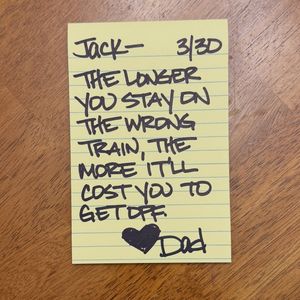 JACK— 3/30
THE LONGER
YOU STAY ON
THE WRONG
TRAIN, THE
MORE IT'LL
COST YOU TO
GET OFF.
Dad